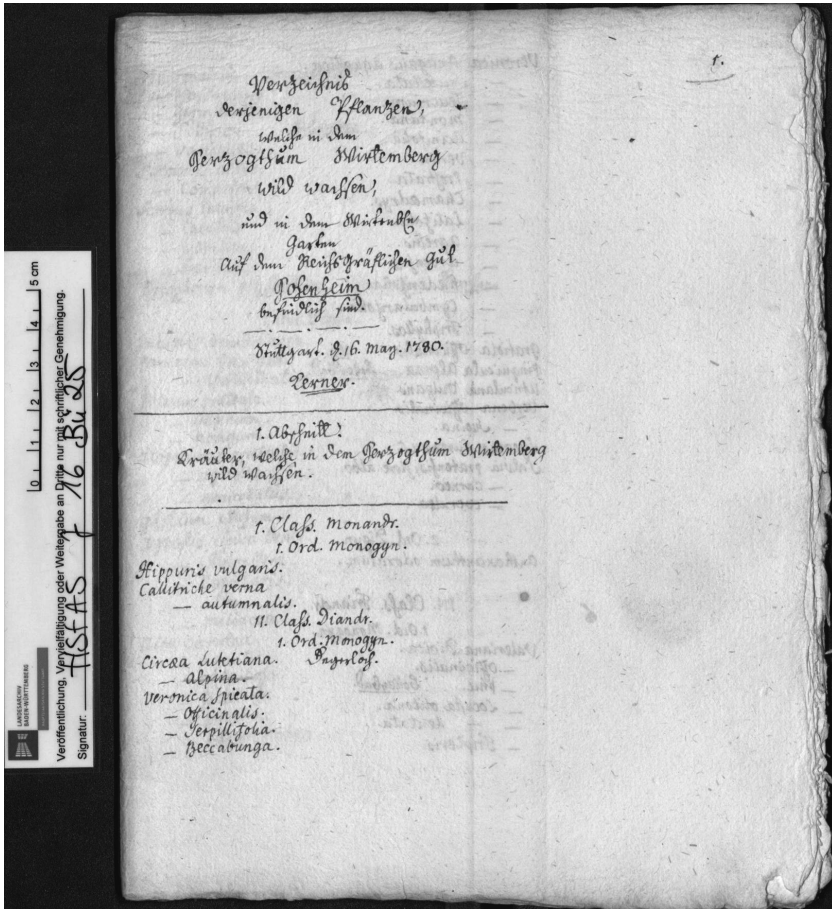 1.
Verzeichnis
derjenigen Pflanzen,
welche in dem
Herzogthum Wirtemberg
wild wachsen,
und in dem Wirtenb.
Garten
Auf dem Reichsgräflichen Gut
Hohenheim
befindlich sind.
Stuttgart. d. 16. May. 1780.
Kerner.
1. Abschnitt.
Kräuter, welche in dem Herzogthum Wirtemberg
wild wachsen.
1. Class. Monandr.
1. Ord. Monogyn.
Hippuris vulgaris.
Callitriche verna
— autumnalis.
II. Class. Diandr.
1. Ord. Monogyn.
Circæa Lutetiana. Degerloch.
— Alpina.
Veronica Spicata.
— Officinalis.
— Serpillifolia.
— Beccabunga.
0 1 2 3 4 5 cm
LANDESARCHIV
BADEN-WÜRTTEMBERG
Veröffentlichung, Vervielfältigung oder Weitergabe an Dritte nur mit schriftlicher Genehmigung.
Signatur: HStAS 16 Bü 25